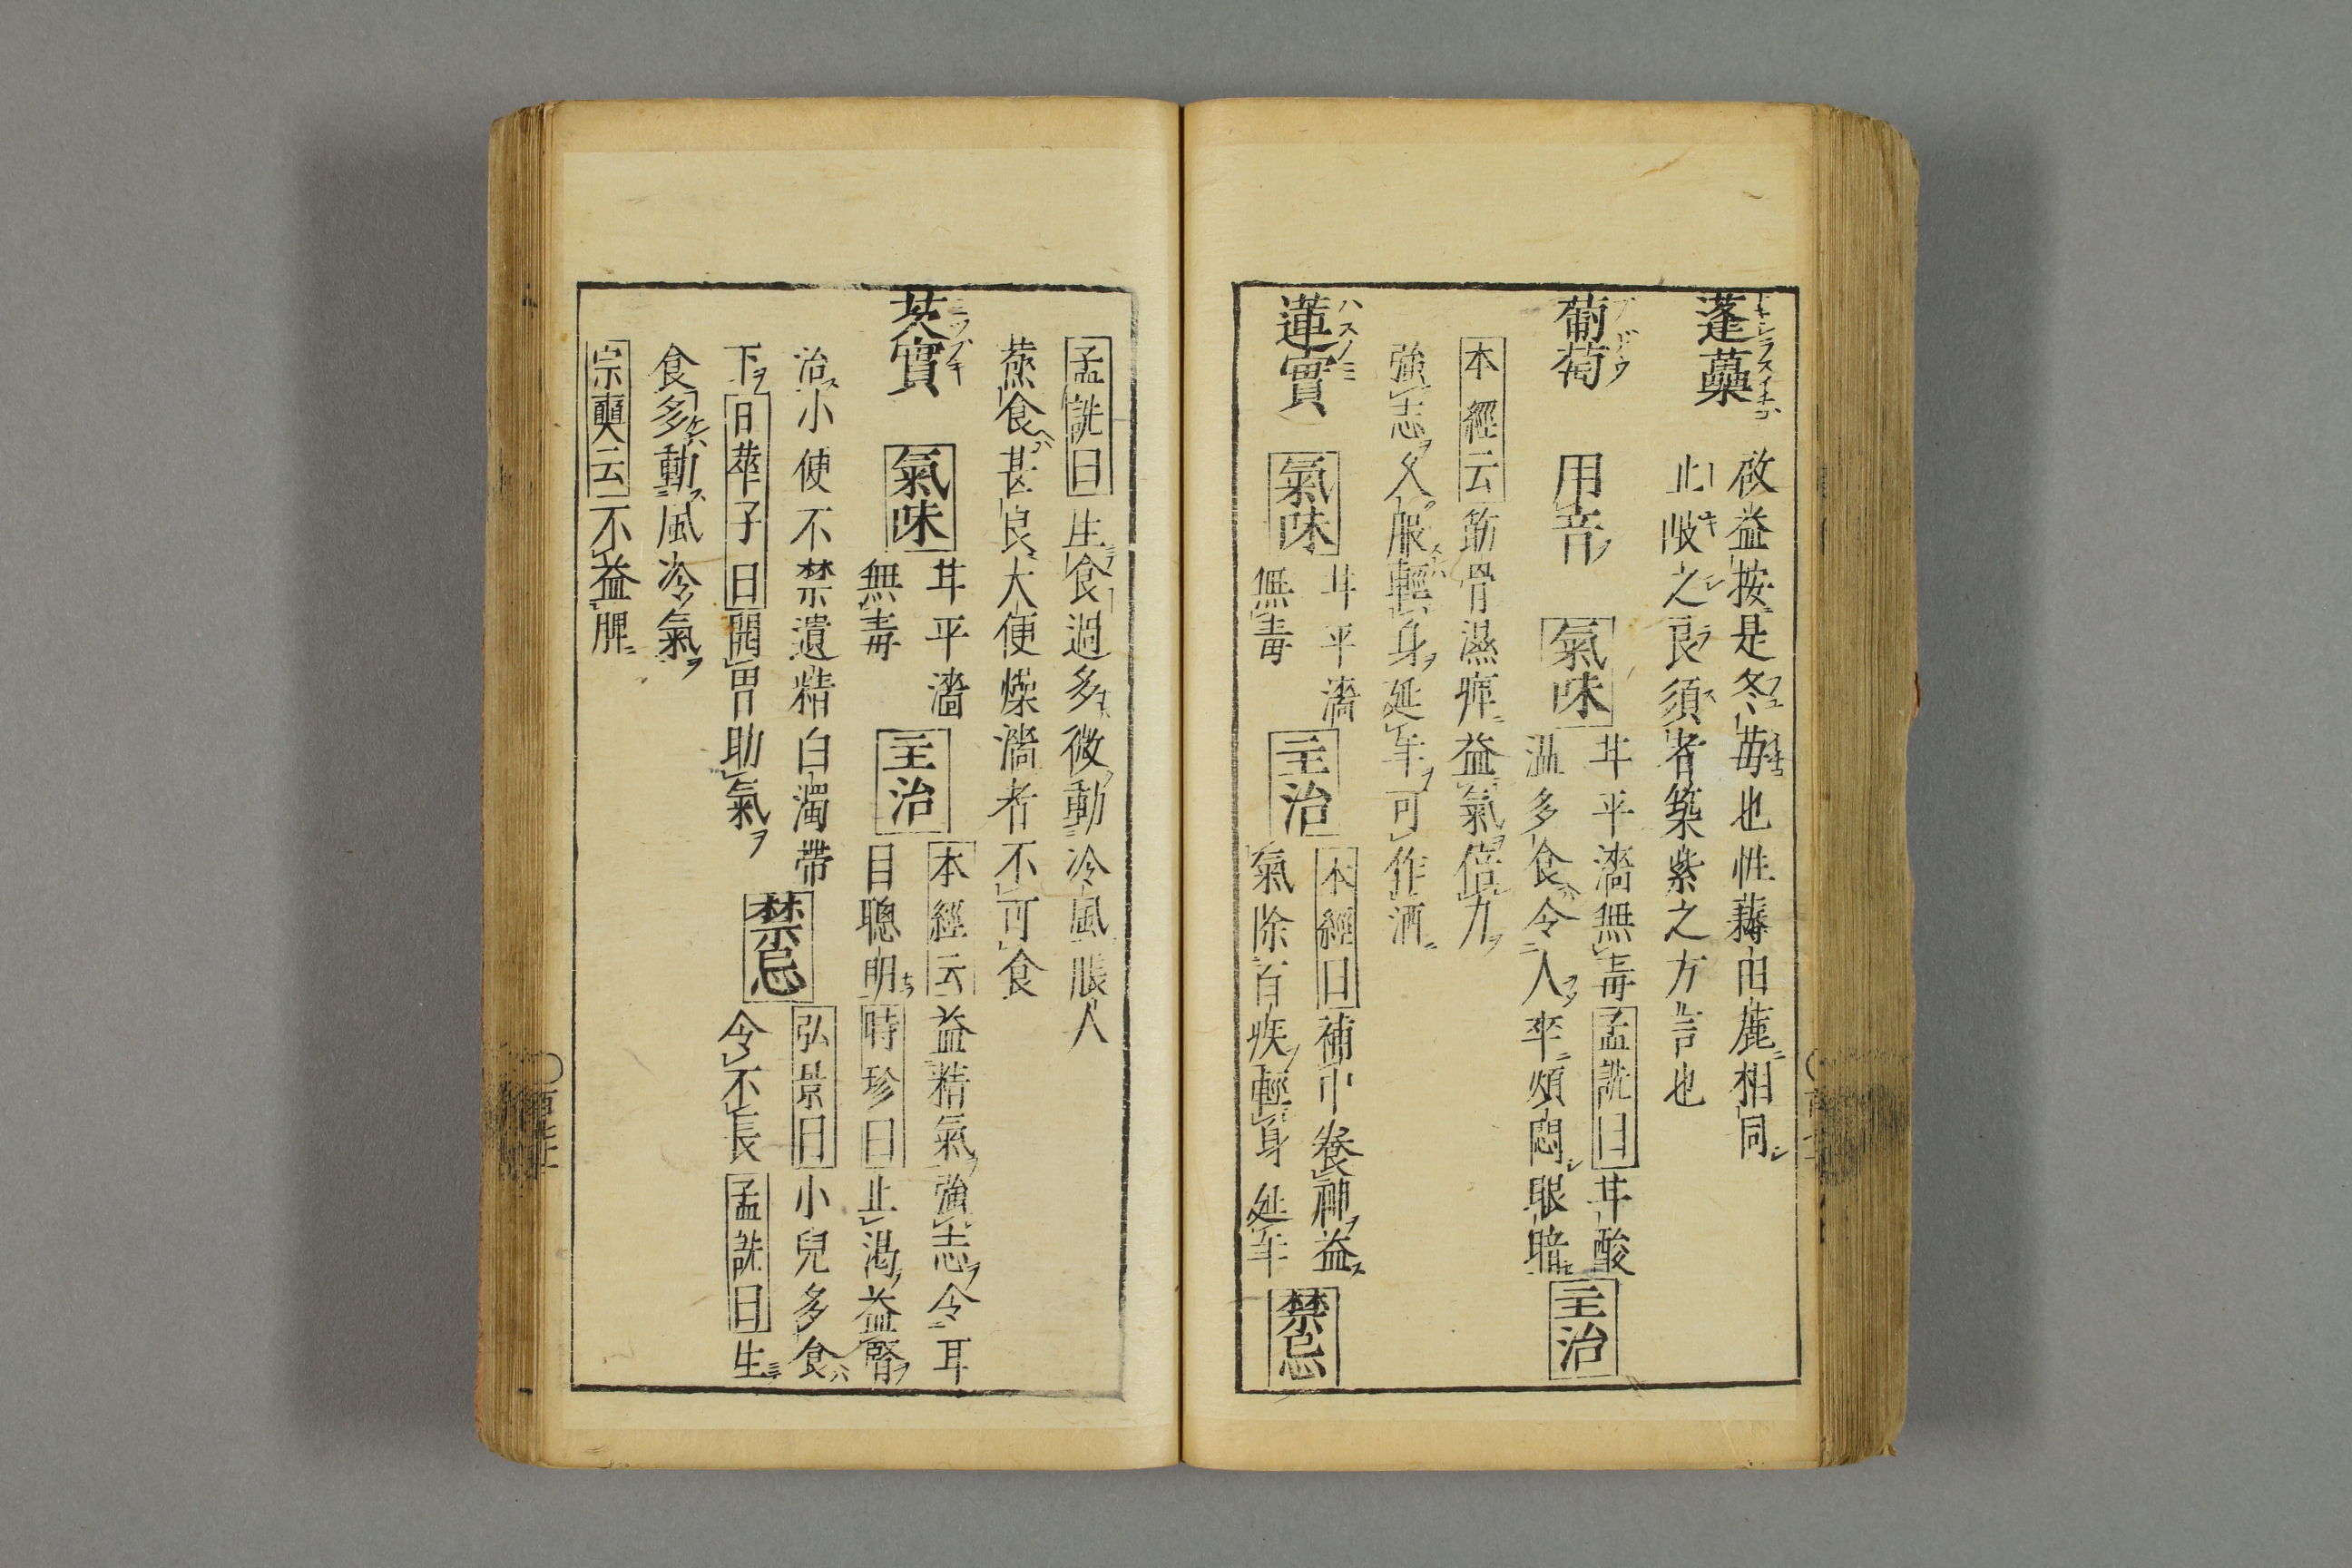 蓬蘽
啟益按是冬苺也性蓐田麃相同
止殴之良須者築紫之方言也
葡萄 用音 氣味
ブドウ
甘平濇無毒孟詵曰甘酸
温多食令人卒煩悶眼暗
主治
本經云筋骨濕痺益氣倍力
強志久服輕身延年可作酒
蓮實 氣味
ハスノミ
甘平濇
無毒
主治
本經曰補中養神益
氣除百疾輕身延年
禁忌
孟詵曰生食過多微動冷風脹人
蒸食甚良大便燥濇者不可食
芡實 氣味
ミヅブキ
甘平濇
無毒
主治
本經云益精氣強志令耳
目聰明時珍曰止渴益腎
治小便不禁遺精白濁帶
下日華子曰開胃助氣
禁忌
弘景曰小兒多食
令不長孟詵曰生
食多動風冷氣
宗奭云不益脾